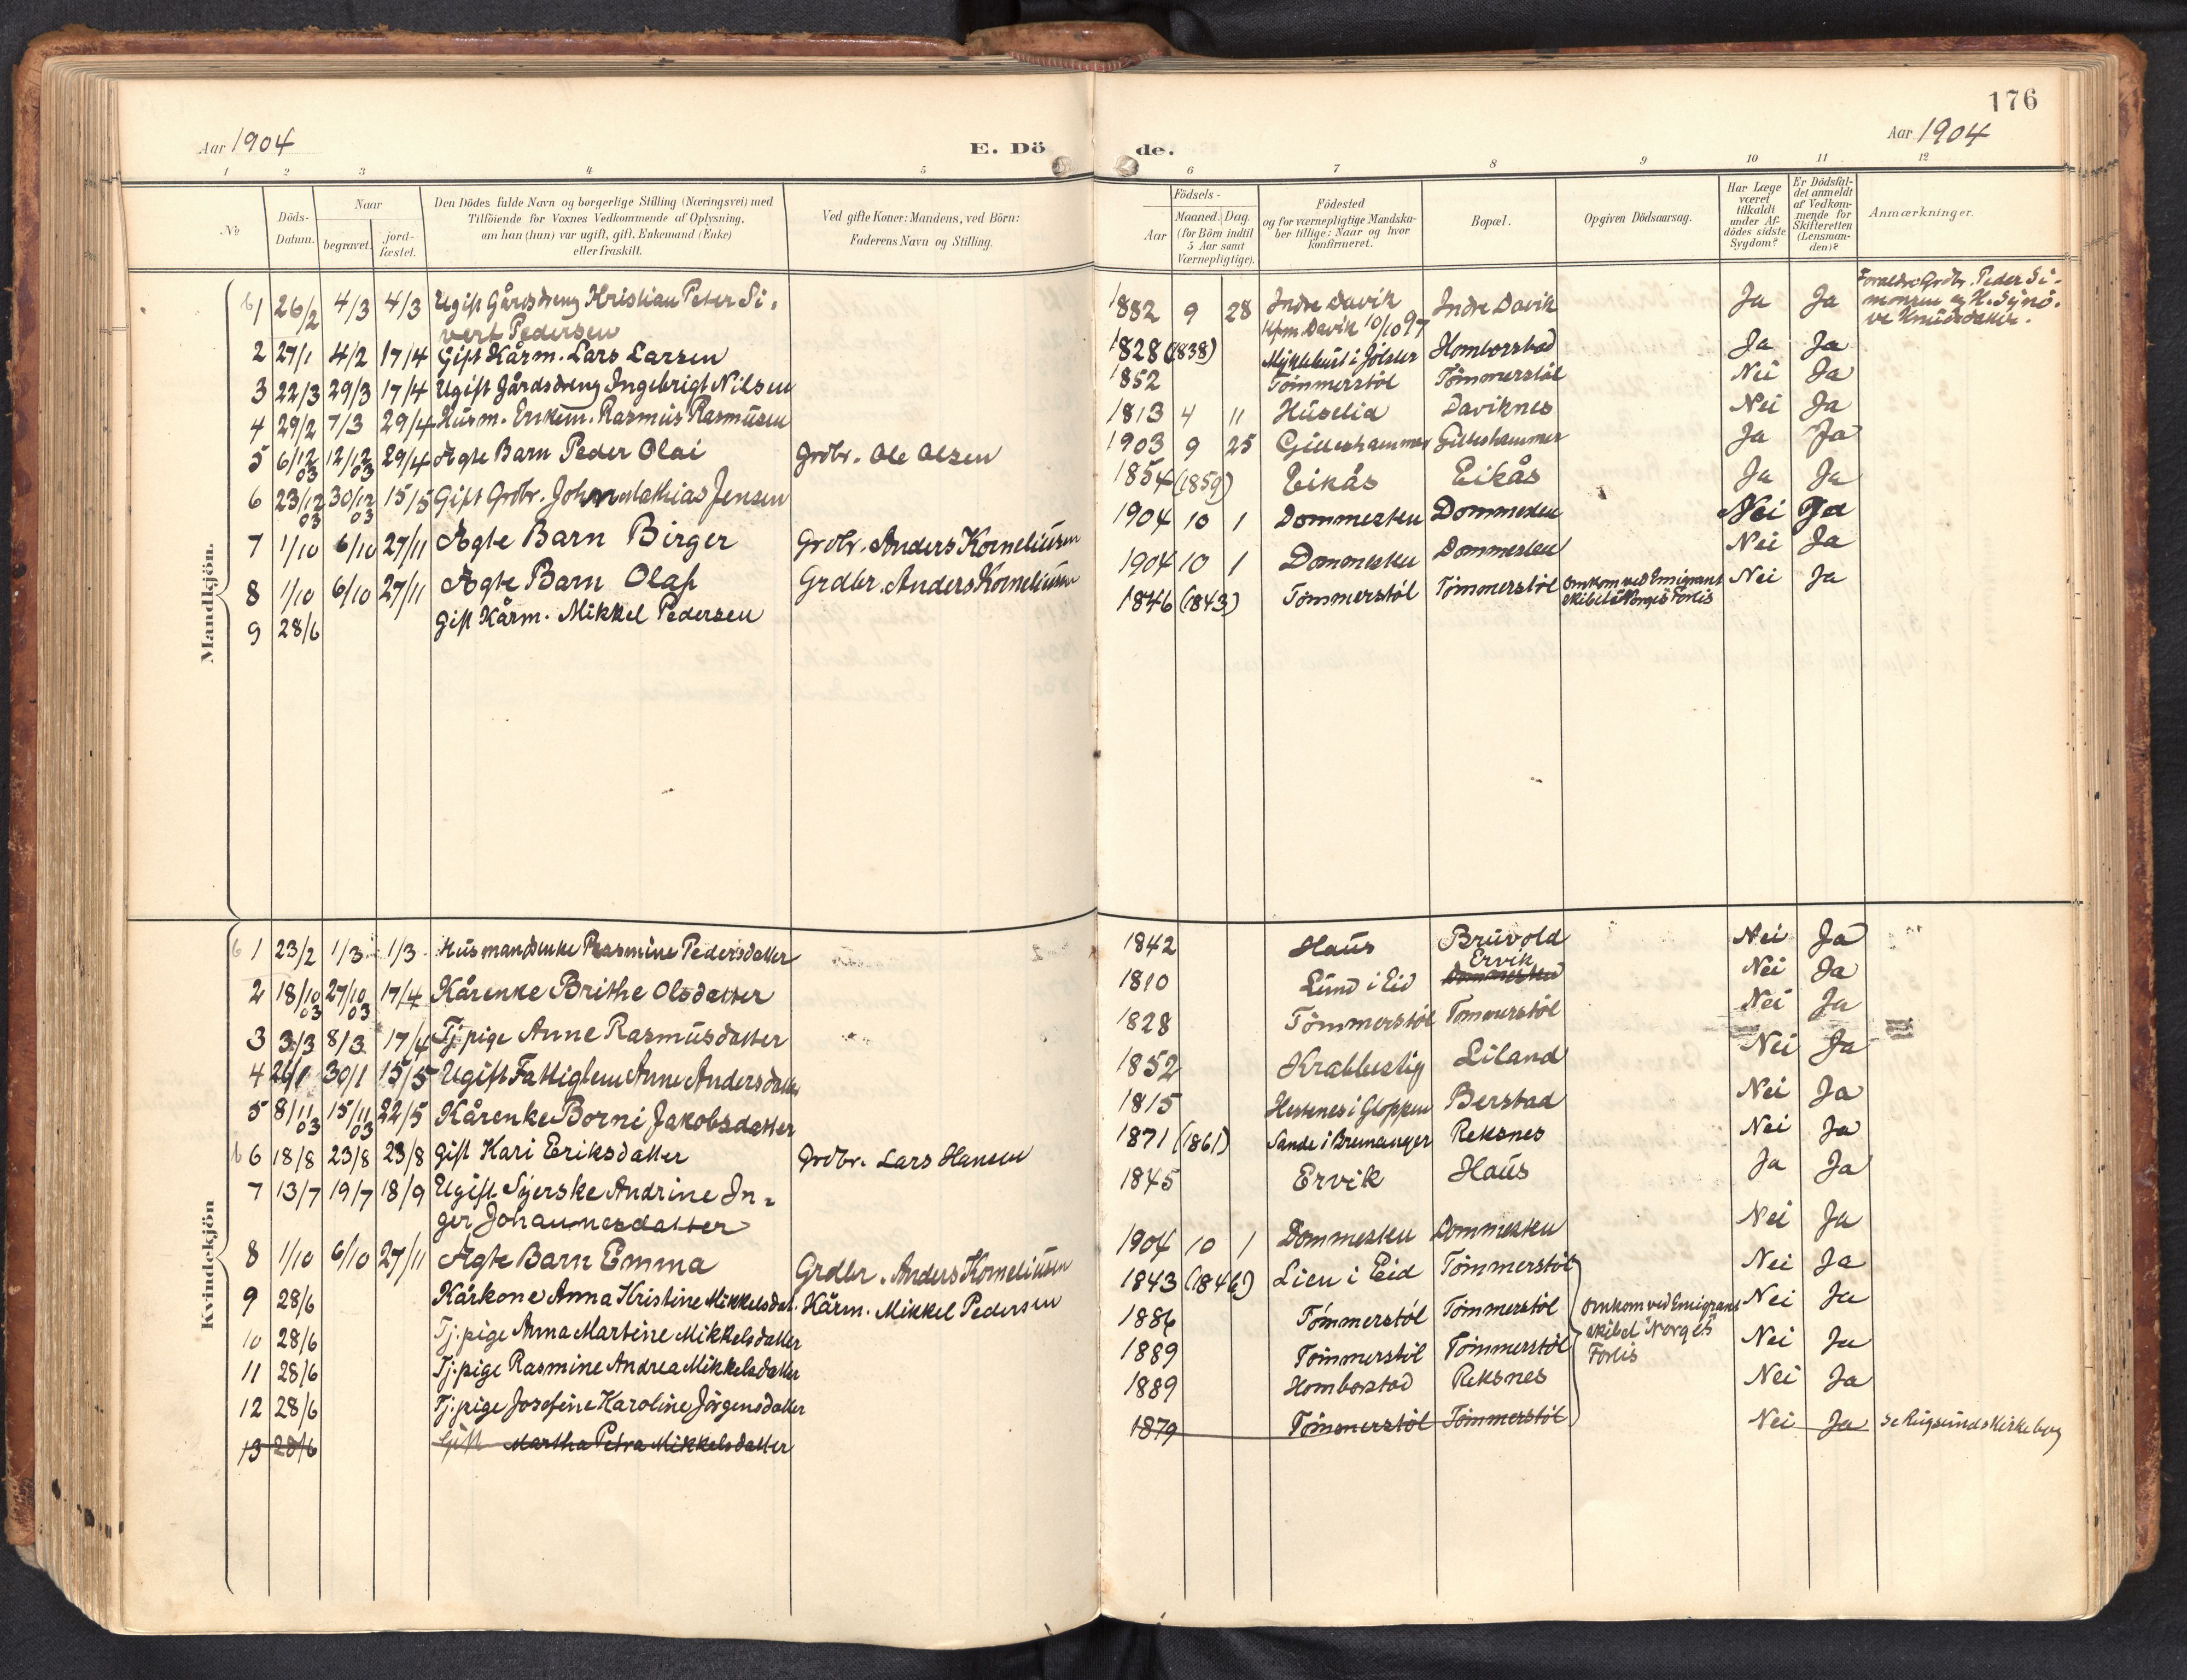 176
Aar 1904
E. Dö
de.
Aar 1904
1 2 3 4 5 6 7 8 9 10 11 12
№
Döds-Datum.
Naar
begravet.
jord-fæstet.
Den Dödes fulde Navn og borgerlige Stilling (Næringsvei) med
Tilföiende for Voxnes Vedkommende af Oplysning,
om han (hun) var ugift, gift, Enkemand (Enke)
eller fraskilt.
Ved gifte Koner: Mandens, ved Börn:
Faderens Navn og Stilling.
Födsels-
Aar
Maaned. Dag.
(for Börn indtil
5 Aar samt
Værnepligtige).
Födested
og for værnepligtige Mandska-
ber tillige: Naar og hvor
konfirmeret.
Bopæl.
Opgiven Dödsaarsag.
Har Læge
været
tilkaldt
under Af-
dödes sidste
Sygdom?
Er Dödsfal-
det anmeldt
af Vedkom-
mende for
Skifteretten
(Lensman-
den)?
Anmærkninger.
Mandkjön.
1 26/2 4/3 4/3 Ugift Gårdsdreng Kristian Peter Si- 1882 9 28 Indre Davik Indre Davik Ja Ja Foraldre Grdbr. Peder Si-
vert Pedersen Kfm. Davik 10/10 97 monsen og H. Synö-
ve Knudsdatter.
2 27/1 4/2 17/4 Gift Kårm. Lars Larsen 1828 (1838) Myklebust i Jölster Homborstad Ja Ja
3 22/3 29/3 17/4 Ugift Gårdsdreng Ingebrigt Nilsen 1852 Tömmerstöl Tömmerstöl Nei Ja
4 29/2 7/3 29/4 Husm. Enkem. Rasmus Rasmusen 1813 4 11 Huselia Daviknes Nei Ja
5 6/12 03 12/12 03 29/4 Ægte Barn Peder Olai Grdbr. Ole Olsen 1903 9 25 Gilleshammer Gilleshammer Ja Ja
6 23/12 03 30/12 03 15/5 Gift Grdbr. Johan Mathias Jensen 1854 (1859) Eikås Eikås Ja Ja
7 1/10 6/10 27/11 Ægte Barn Birger Grdbr. Anders Korneliusen 1904 10 1 Dommesten Dommesten Nei Ja
8 1/10 6/10 27/11 Ægte Barn Olaf Grdbr. Anders Korneliusen 1904 10 1 Dommesten Dommesten Nei Ja
9 28/6 Gift Kårm. Mikkel Pedersen 1846 (1843) Tömmerstöl Tömmerstöl Omkom ved Emigrant Nei Ja
skibet "Norge"s Forlis
Kvindekjön
1 23/2 1/3 1/3 Husmandsenke Rasmine Pedersdatter 1842 Haus Bruvold Nei Ja
Ervik
2 18/10 03 27/10 03 17/4 Kårenke Brithe Olsdatter 1810 Lund i Eid Dommesten Nei Ja
3 3/3 8/3 17/4 Tj. pige Anne Rasmusdatter 1828 Tömmerstöl Tömmerstöl Nei Ja
4 26/1 30/1 15/5 Ugift Fattiglem Anne Andersdatter 1852 Krabbestig Liland Nei Ja
5 8/11 03 15/11 03 22/5 Kårenke Borni Jakobsdatter 1815 Hestenes i Gloppen Berstad Nei Ja
6 18/8 23/8 23/8 Gift Kari Eriksdatter Grdbr. Lars Hansen 1871 (1861) Sande i Bremanger Reksnes Nei Ja
7 13/7 19/7 18/9 Ugift Syerske Andrine In- 1845 Ervik Haus Ja Ja
ger Johannesdatter
8 1/10 6/10 27/11 Ægte Barn Emma Grdbr. Anders Korneliusen 1904 10 1 Dommesten Dommesten Nei Ja
9 28/6 Kårkone Anna Kristine Mikkelsdat. Kårm. Mikkel Pedersen 1843 (1846) Lien i Eid Tömmerstöl Nei Ja
10 28/6 Tj. pige Anna Martine Mikkelsdatter 1886 Tömmerstöl Tömmerstöl Omkom ved Emigrant Nei Ja
11 28/6 Tj. pige Rasmine Andrea Mikkelsdatter 1889 Tömmerstöl Tömmerstöl skibet "Norge"s Nei Ja
12 28/6 Tj. pige Josefine Karoline Jörgensdatter 1889 Homborstad Reksnes Forlis Nei Ja
13 28/6 Gift Martha Petra Mikkelsdatter 1879 Tömmerstöl Tömmerstöl Nei Ja Se Rugsunds Kirkebog